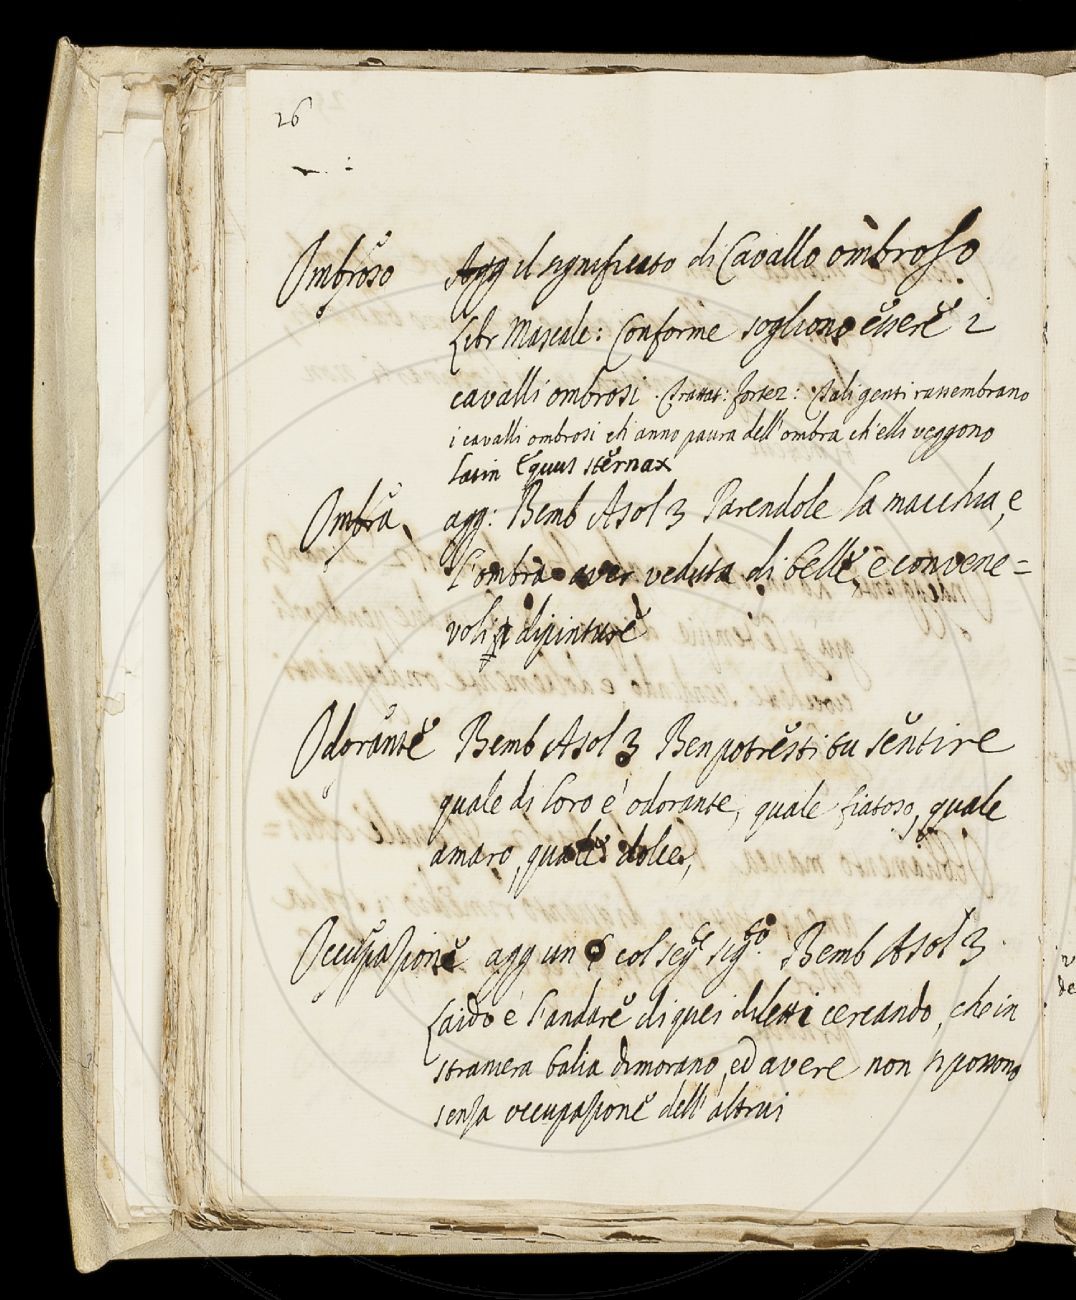 26
Ombroso Agg il significato di Cavallo ombroso
Libr Mascale: Conforme sogliono essere i
cavalli ombrosi. Trattat: fortez: Tali genti rassembrano
i cavalli ombrosi ch'anno paura dell'ombra ch'elli veggono
Latin Equus sternax
Ombra agg: Bemb Asol 3 Parendole la macchia, e
l'ombra aver veduta di belle, e convene=
voli dipinture
Odorante Bemb Asol 3 Ben potresti tu sentire
quale di loro è odorante, quale fiatoso, quale
amaro, quale dolce,
Occupazione agg un § col seg.te sig.to. Bemb Asol 3
Laido è l'andare di quei diletti cercando, che in
straniera balia dimorano, ed avere non si possono
senza occupazione dell'altrui